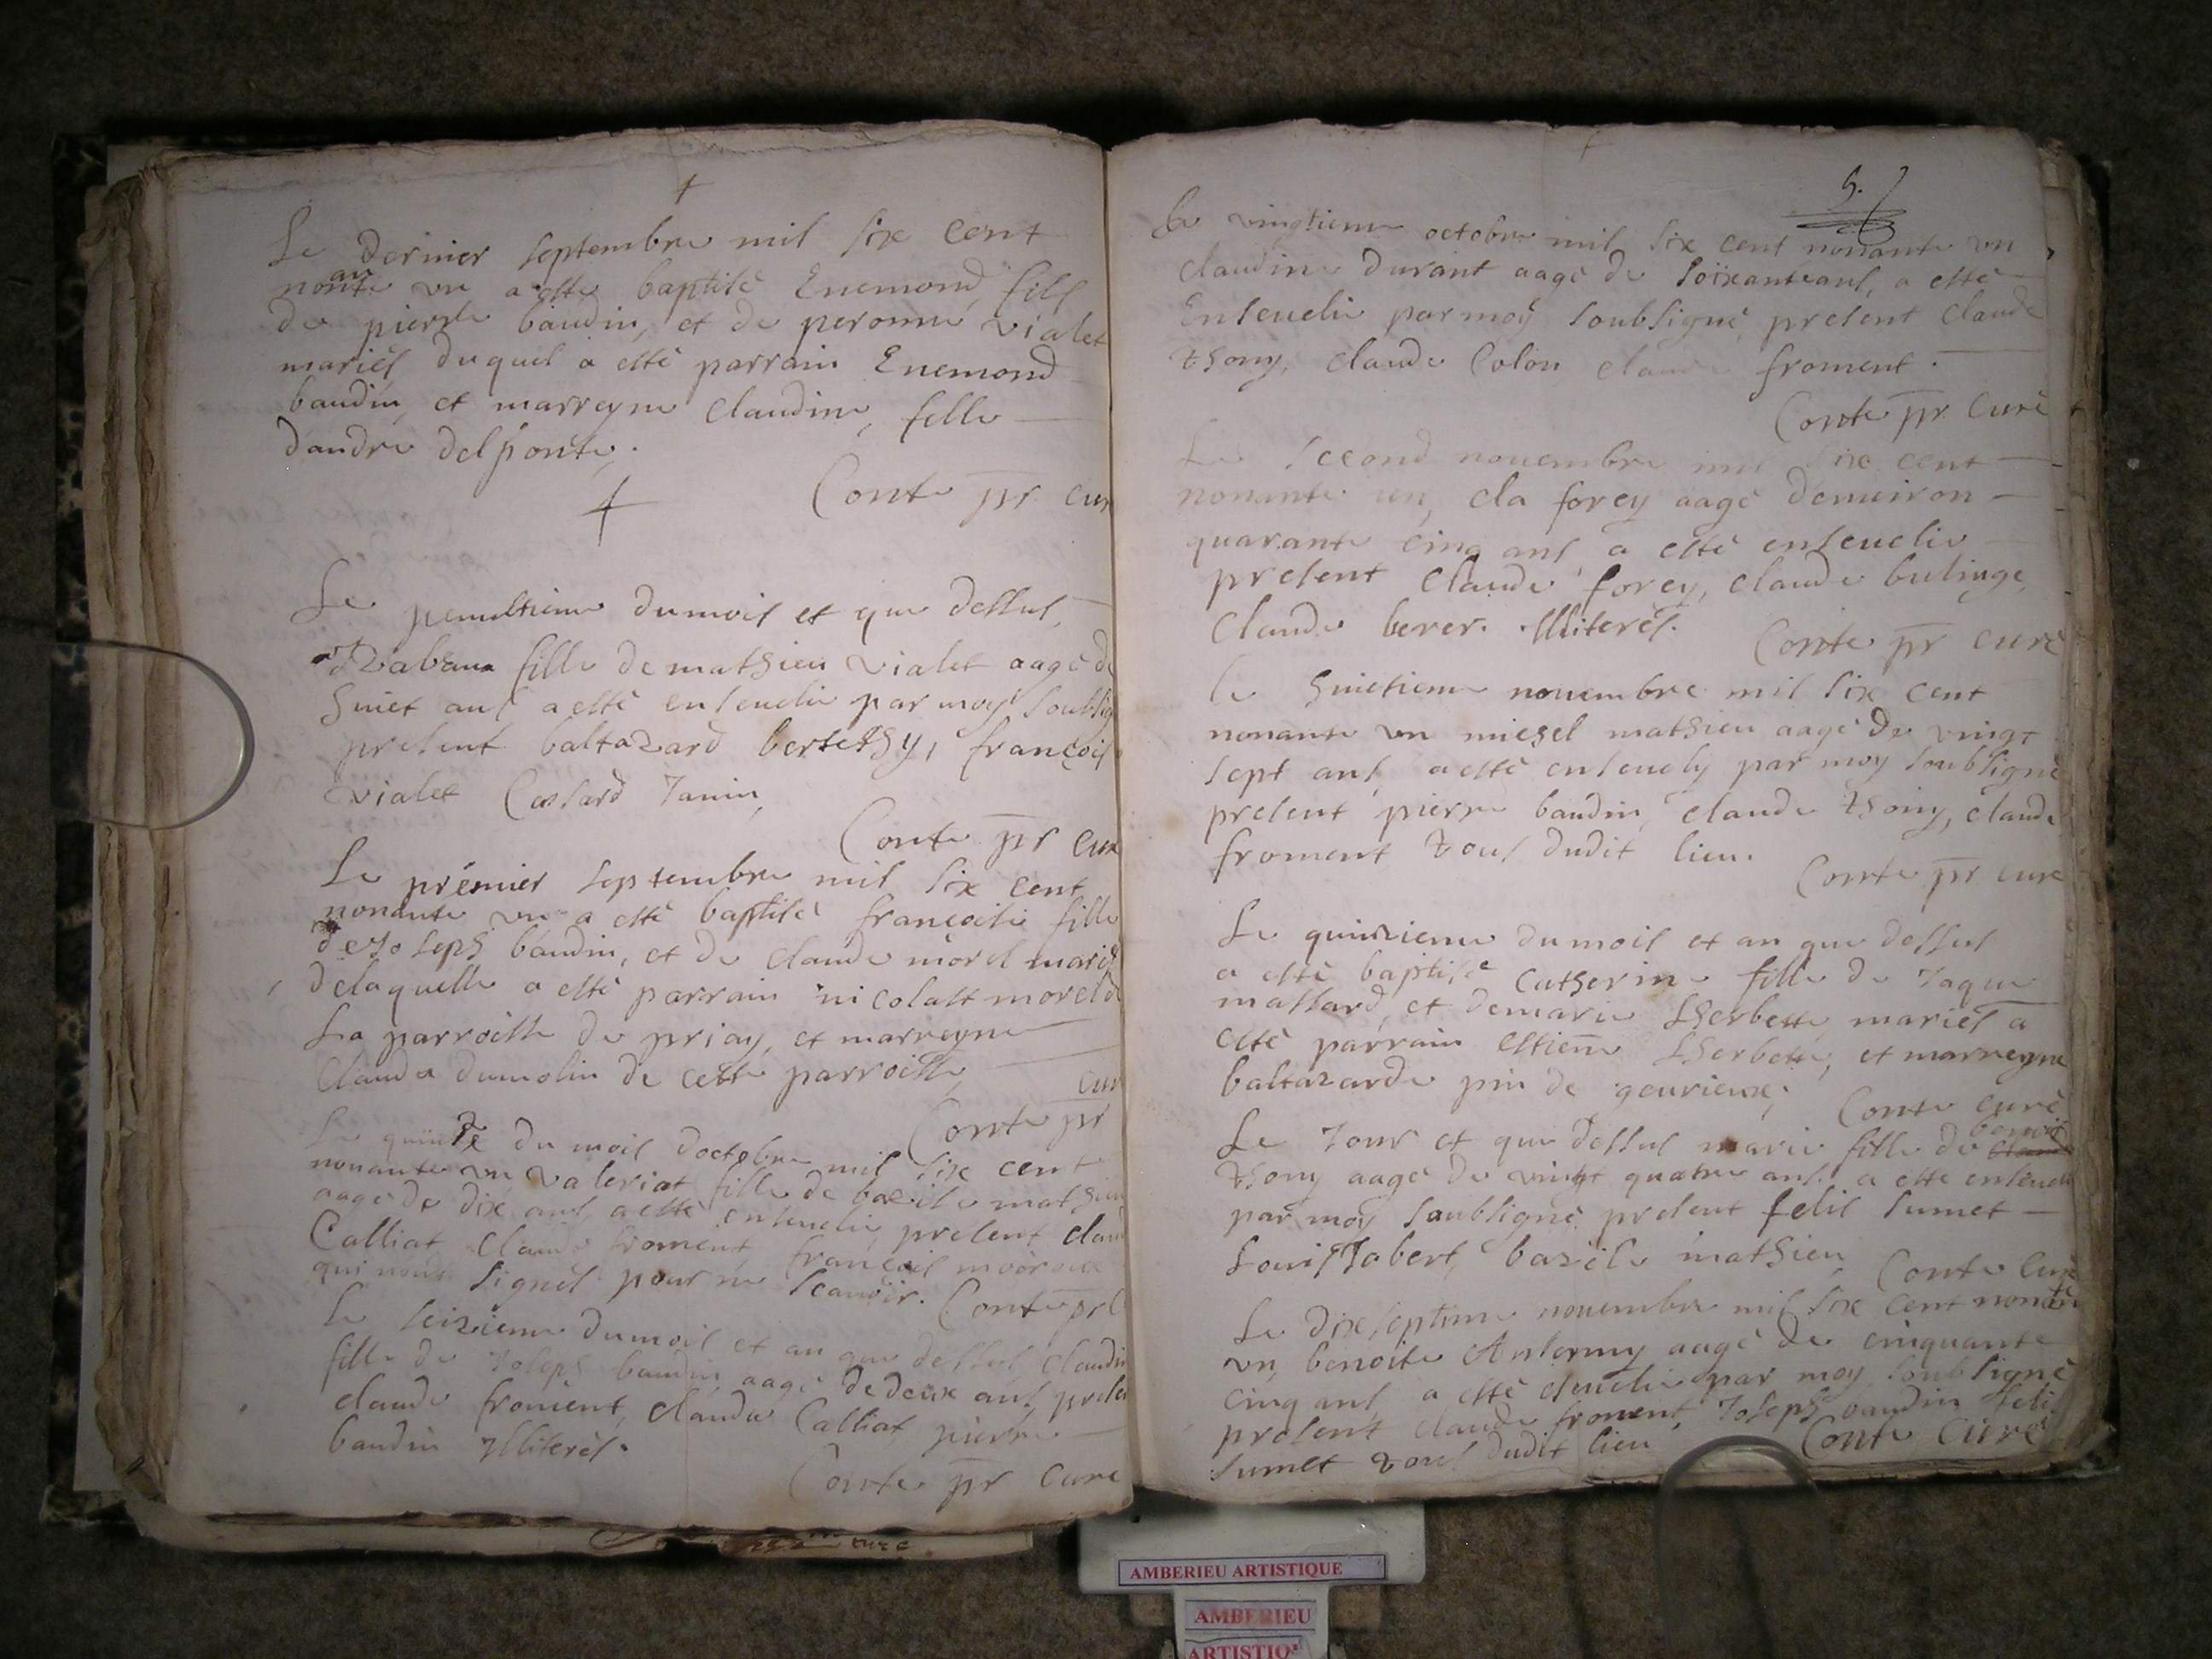 Le dernier septembre mil six cent
nonante un a esté baptisé Enemond, fils
de pierre baudin, et de peronne vialet
mariés duquel a esté parrain Enemond
baudin, et marreyne claudine, fille
dandre delponte.
Conte pr cur
Le penultieme du mois et que dessus,
Izabeau fille de mathieu vialet aagé de
huict ans a esté enseuelie par moy soubsig
present baltazard berthethy, françois
vialet Janin
Conte pr cur
Le premier septembre mil six cent
nonante un a esté baptisé françoise fille
de Joseph baudin, et de claude morel mariés
delaquelle a esté parrain nicolast morel de
La parroisse de priay, et marreyne
Clauda dumolin de cette parroisse,
cur
Conte pr
Le quinze du mois doctobre mil six cent
nonante un valeriat fille de basile mathieu
aagé de dix ans a esté enseuelie, present clau
Calliat claude froment, françois
qui nont signés pour ne scauoir. Conte pr C
Le seizieme du mois et an que dessus claudin
fille de Joseph baudin aagé de deux ans, presen
claude froment, claude Calliat, pierre
baudin Illiterés.
Conte pr cure
5.
Le vingtieme octobre mil six cent nonante un
claudine durant aagé de soixante ans, a esté
Enseuelie par moy soubsigné, present claude
thony, claude Colon claude froment.
Conte pr. curé
Le second nouembre mil six cent
nonante un, cla forey aagé denuiron
quarante cinq ans, a esté enseuelie
present claude forey, claude bulinge,
Claude berer. Illiterés.
Conte pr curé
le huictieme nouembre mil six cent
nonante un michel mathieu aagé de vingt
sept ans, a esté enseuely par moy soubsigné
present pierre baudin, claude thony, claude
froment tous dudit lieu.
Conte pr cure
Le quinzieme du mois et an que dessus
a esté baptisé Catherine fille de Jaque
massard, et de marie Lherbette mariés a
esté parrain estiene Lherbette, et marreyne
baltazarde pin de geurieux,
Conte curé
Le Jour et que dessus marie fille de benoit
thony aagé de vingt quatre ans a esté enseueli
par moy soubsigné present felis sumet
Louis Jobert, basile mathieu
Conte Curé
Le dix septime nouembre mil six cent nonante
un, benoite Antermy aagé de cinquante
cinq ans a esté par moy soubsigné
present claude froment, Joseph baudin felis
sumet tous dudit lieu
Conte Curé
AMBERIEU ARTISTIQUE
AMBERIEU
ARTISTIQ